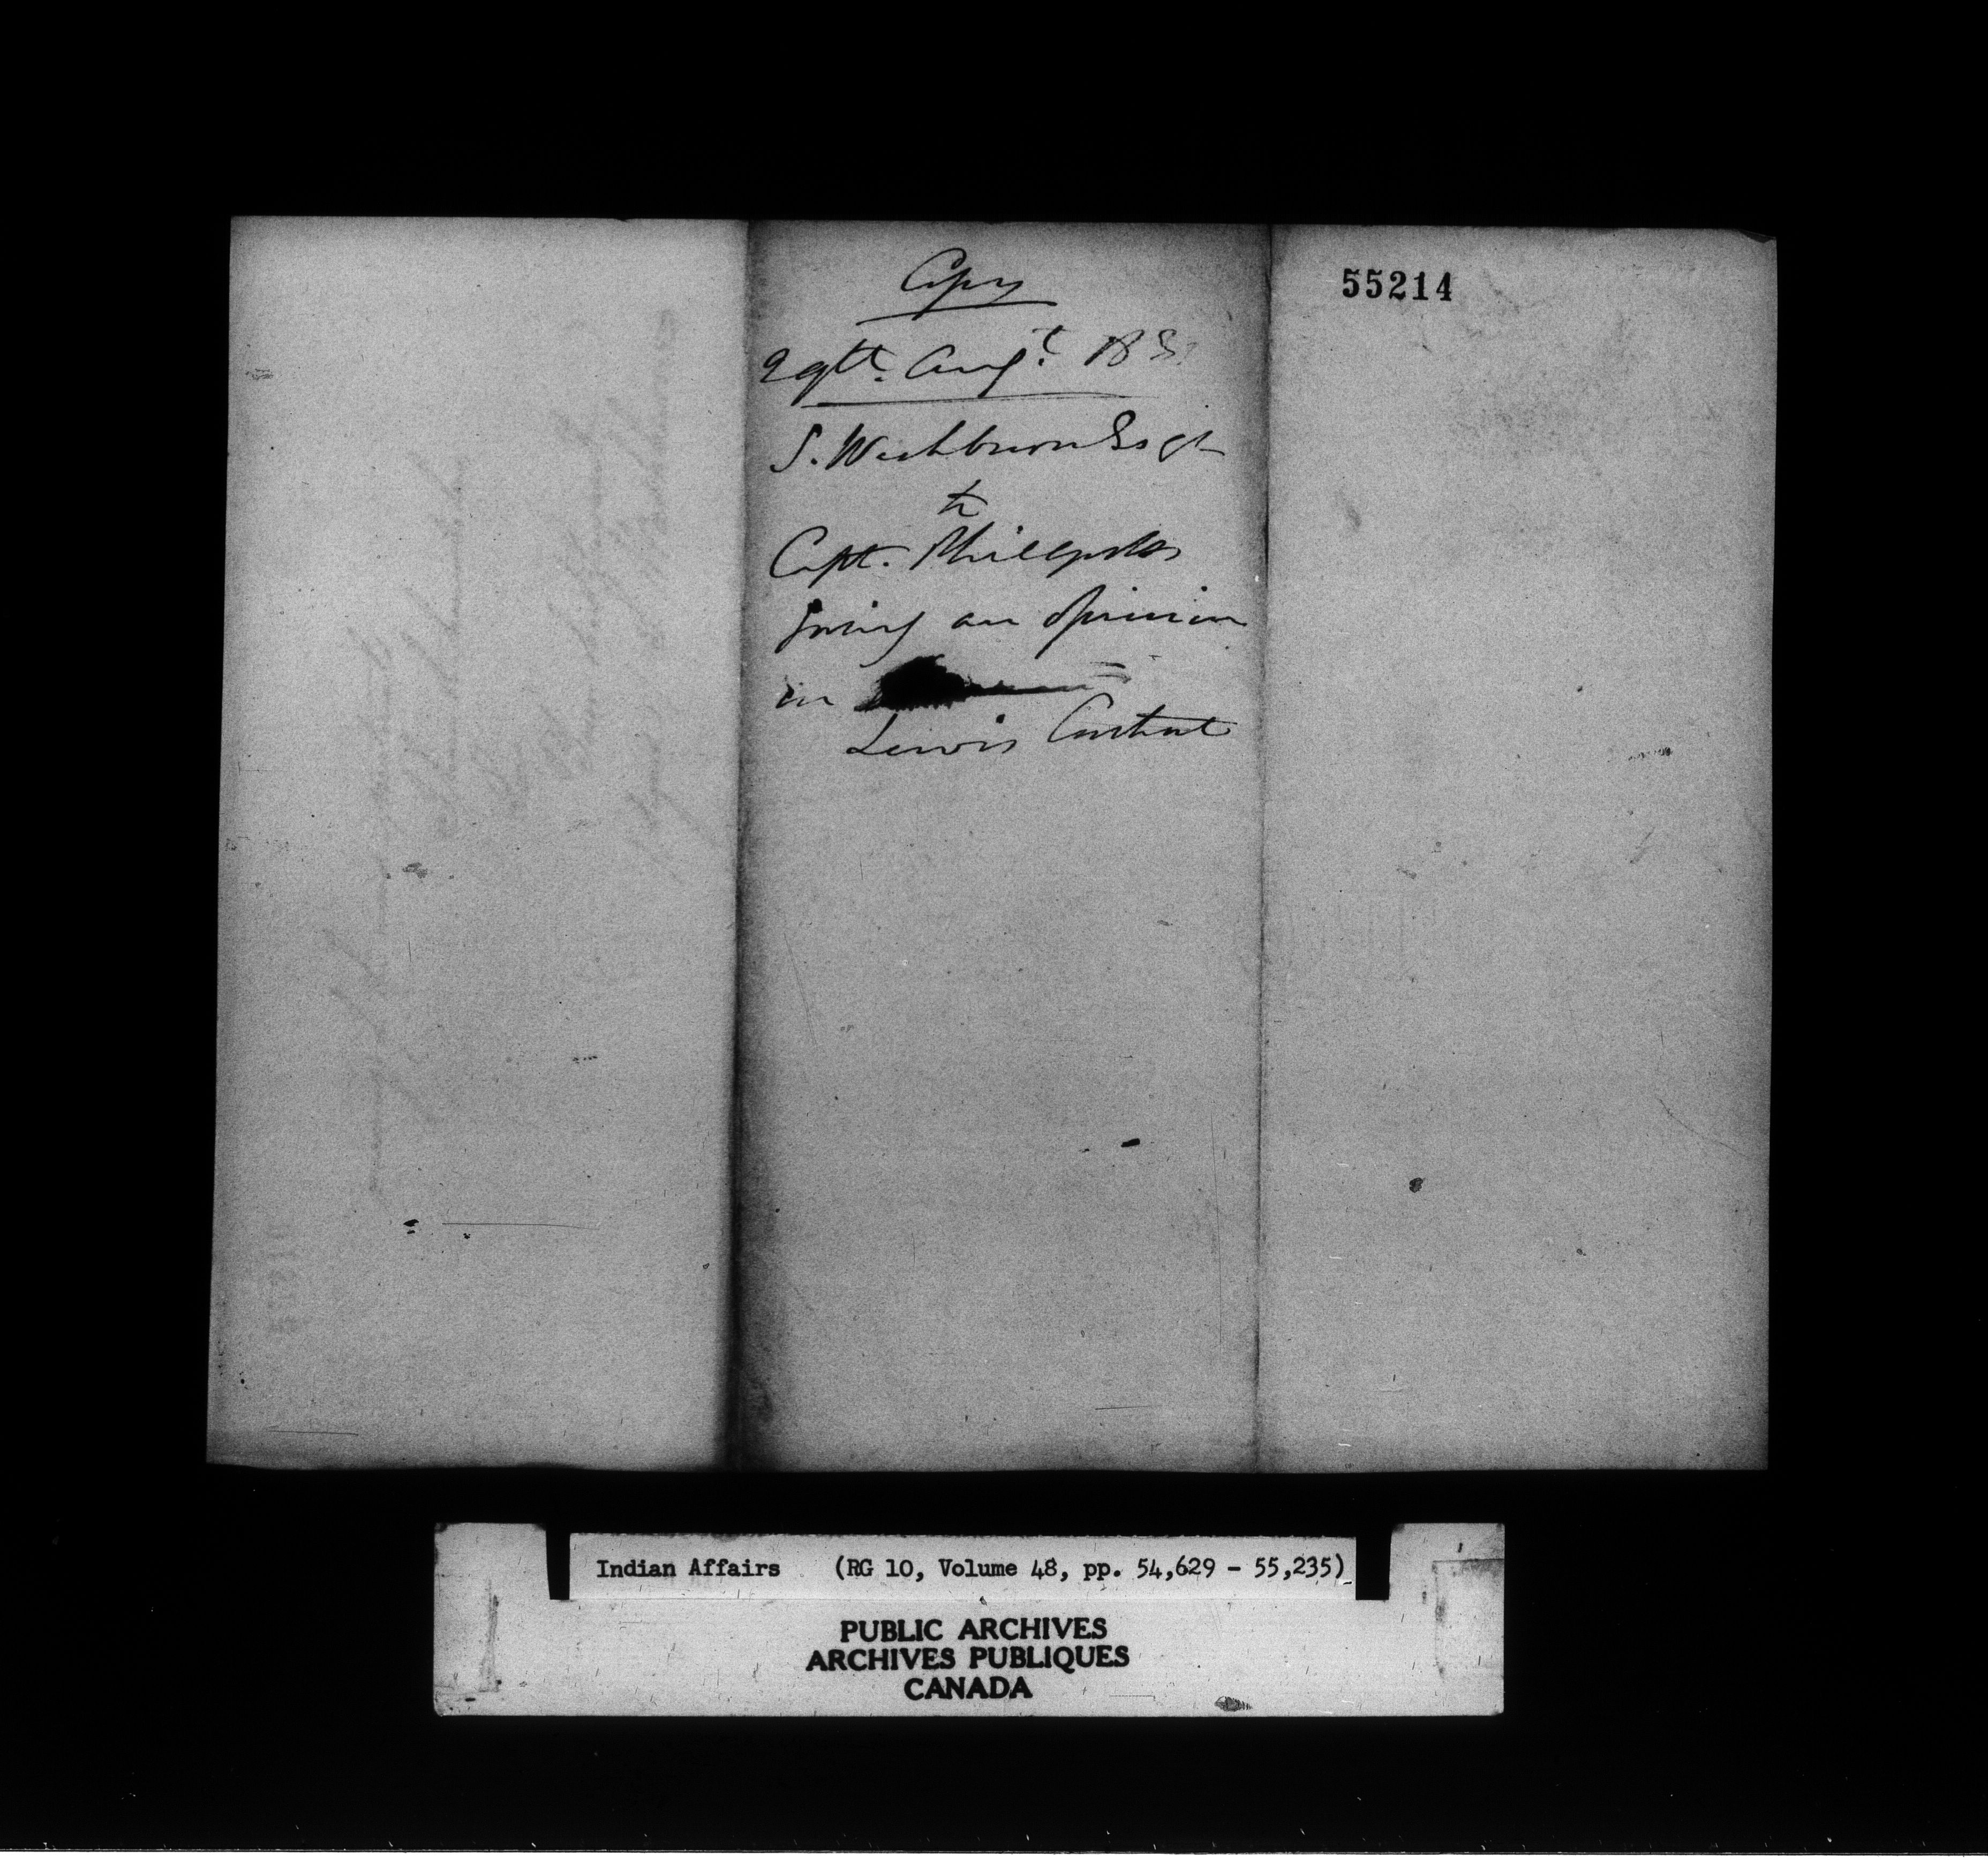 Copy
29th. Augt. 183
S. Washburn Esqr
to
Capt. Phillpotts
giving an Opinion
in
Lewis Contract
55214
Indian Affairs (RG 10, Volume 48, pp. 54,629 - 55,235)
PUBLIC ARCHIVES
ARCHIVES PUBLIQUES
CANADA